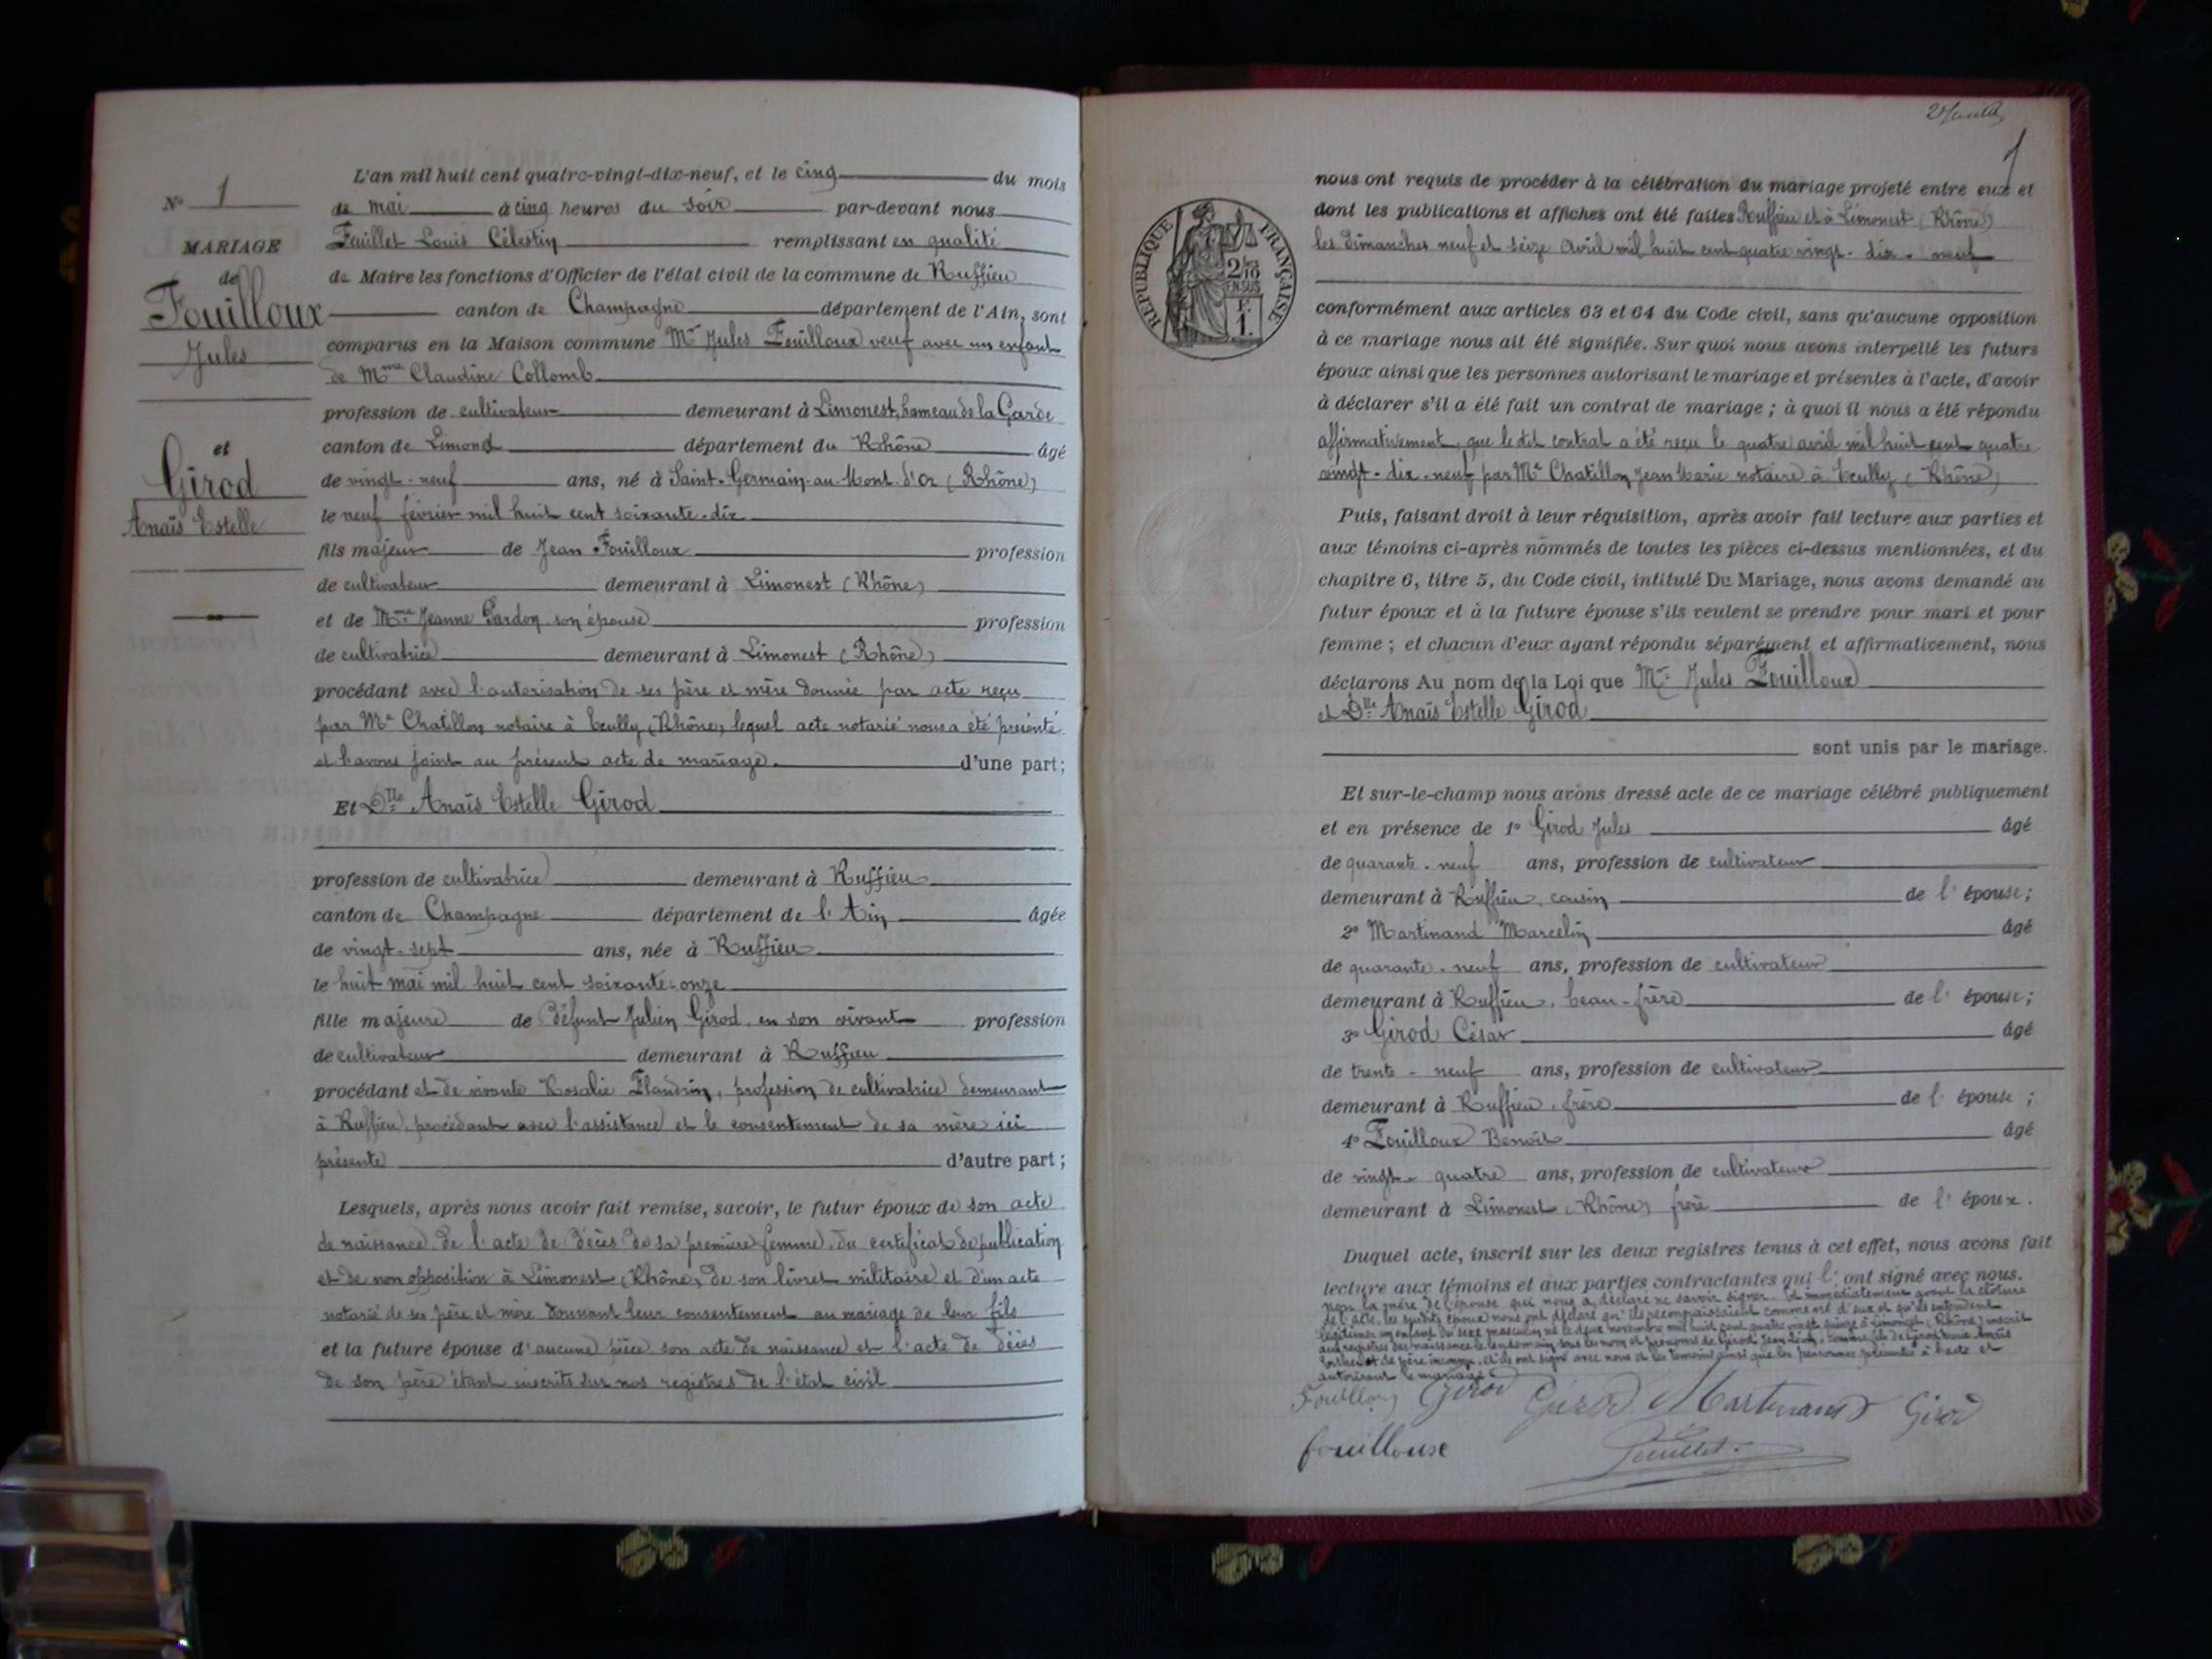 N° 1
MARIAGE
de
Fouilloux
Jules
et
Girod
Anaïs Estelle
L'an mil huit cent quatre-vingt-dix-neuf, et le cinq du mois
de mai à cinq heures du soir par-devant nous
Feuillet Louis Célestin remplissant en qualité
de Maire les fonctions d'Officier de l'état civil de la commune de Ruffieu
canton de Champagne département de l'Ain, sont
comparus en la Maison commune Mr Jules Fouilloux veuf avec un enfant
de Mme Claudine Collomb
profession de cultivateur demeurant à Limonest, hameau de la Garde
canton de Limonest département du Rhône âgé
de vingt-neuf ans, né à Saint-Germain-au-Mont-d'Or (Rhône)
le neuf février mil huit cent soixante-dix
fils majeur de Jean Fouilloux profession
de cultivateur demeurant à Limonest (Rhône)
et de Mme Jeanne Pardon son épouse profession
de cultivatrice demeurant à Limonest (Rhône)
procédant avec l'autorisation de ses père et mère donnée par acte reçu
par Me Chatillon notaire à Ecully (Rhône) lequel acte notarié nous a été présenté
et l'avons joint au présent acte de mariage. d'une part;
Et Dlle Anaïs Estelle Girod
profession de cultivatrice demeurant à Ruffieu
canton de Champagne département de l'Ain âgée
de vingt-sept ans, née à Ruffieu
le huit mai mil huit cent soixante-onze
fille majeure de défunt Julien Girod en son vivant profession
de cultivateur demeurant à Ruffieu
procédant et de vivante Rosalie Flandrin, profession de cultivatrice demeurant
à Ruffieu, procédant avec l'assistance et le consentement de sa mère ici
présente d'autre part;
Lesquels, après nous avoir fait remise, savoir, le futur époux de son acte
de naissance, de l'acte de décès de sa première femme, du certificat de publication
et de non opposition à Limonest (Rhône), de son livret militaire et d'un acte
notarié de ses père et mère donnant leur consentement au mariage de leur fils
et la future épouse d'aucune pièce son acte de naissance et l'acte de décès
de son père étant inscrits sur nos registres de l'état civil
1
RÉPUBLIQUE FRANÇAISE
2/10
EN SUS
F.
1.
nous ont requis de procéder à la célébration du mariage projeté entre eux et
dont les publications et affiches ont été faites Ruffieu et à Limonest (Rhône)
les dimanches neuf et seize avril mil huit cent quatre vingt-dix-neuf
conformément aux articles 63 et 64 du Code civil, sans qu'aucune opposition
à ce mariage nous ait été signifiée. Sur quoi nous avons interpellé les futurs
époux ainsi que les personnes autorisant le mariage et présentes à l'acte, d'avoir
à déclarer s'il a été fait un contrat de mariage; à quoi il nous a été répondu
affirmativement, que le dit contrat a été reçu le quatre avril mil huit cent quatre
vingt-dix-neuf par Me Chatillon Jean Marie notaire à Ecully (Rhône)
Puis, faisant droit à leur réquisition, après avoir fait lecture aux parties et
aux témoins ci-après nommés de toutes les pièces ci-dessus mentionnées, et du
chapitre 6, titre 5, du Code civil, intitulé Du Mariage, nous avons demandé au
futur époux et à la future épouse s'ils veulent se prendre pour mari et pour
femme; et chacun d'eux ayant répondu séparément et affirmativement, nous
déclarons Au nom de la Loi que Mr Jules Fouilloux
et Dlle Anaïs Estelle Girod
sont unis par le mariage.
Et sur-le-champ nous avons dressé acte de ce mariage célébré publiquement
et en présence de 1° Girod Jules âgé
de quarante-neuf ans, profession de cultivateur
demeurant à Ruffieu, cousin de l'épouse;
2° Martinand Marcelin âgé
de quarante-neuf ans, profession de cultivateur
demeurant à Ruffieu, beau-frère de l'épouse;
3° Girod César âgé
de trente-neuf ans, profession de cultivateur
demeurant à Ruffieu, frère de l'épouse;
4° Fouilloux Benoît âgé
de vingt-quatre ans, profession de cultivateur
demeurant à Limonest (Rhône) frère de l'époux.
Duquel acte, inscrit sur les deux registres tenus à cet effet, nous avons fait
lecture aux témoins et aux parties contractantes qui l'ont signé avec nous.
la mère de l'épouse qui nous a déclaré ne savoir signer. Et immédiatement avant la clôture
de l'acte, les susdits époux nous ont déclaré qu'ils reconnaissaient comme né d'eux et qu'ils entendent
légitimer un enfant du sexe masculin né le deux novembre mil huit cent quatre vingt à Limonest (Rhône) inscrit
aux registres des naissances le lendemain sous les nom et prénoms de Girod Jean comme fils de Girod Anaïs
Estelle et de père inconnu, et ils ont signé avec nous et les témoins ainsi que les personnes présentes à l'acte et
autorisant le mariage.
Fouilloux Girod Girod Martinand Girod
fouilloux Feuillet